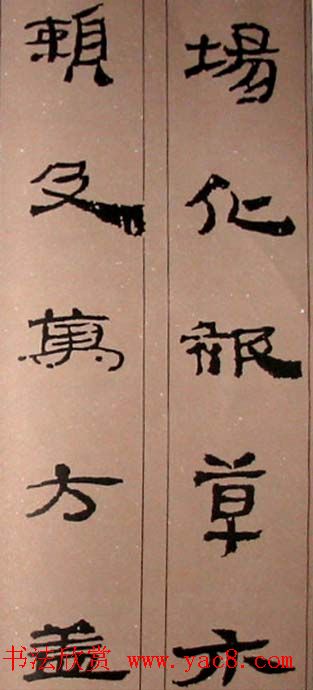 場化被草木
賴及萬方盖
书法欣赏 www.yac8.com